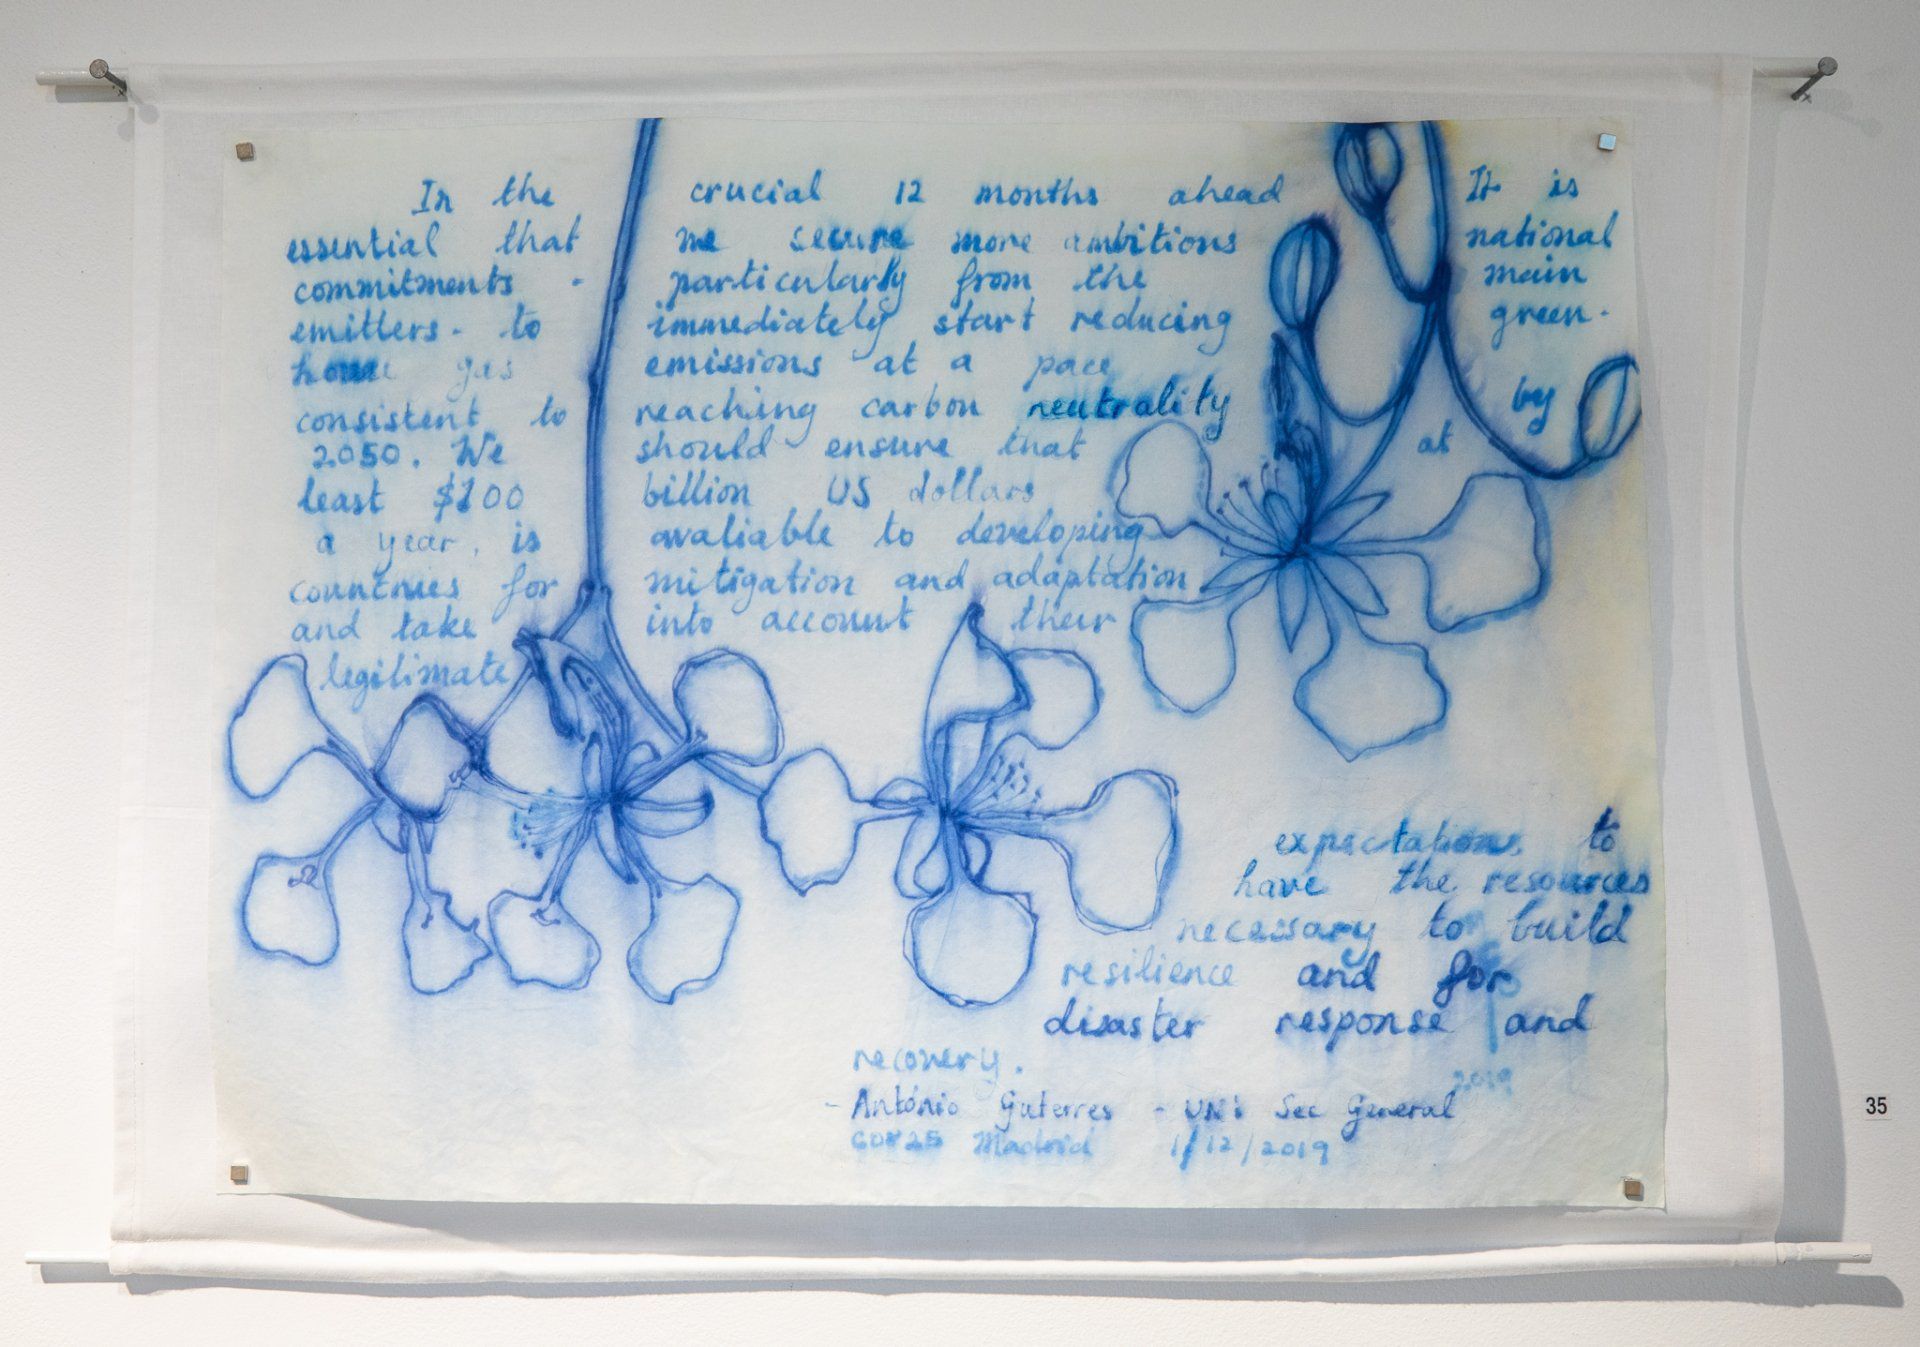 In the crucial 12 months ahead It is
essential that we secure more ambitions national
commitments - particularly from the main
emitters - to immediately start reducing green-
house gas emissions at a pace
consistent to reaching carbon neutrality by
2050. We should ensure that at
least $100 billion US dollars
a year, is avaliable to developing
countries for mitigation and adaptation
and take into account their
legitimate
expectations to
have the resources
necessary to build
resilience and for
disaster response and
recovery.
2019
- António Guterres - UN's Sec General
COP25 Madrid 1/12/2019
35